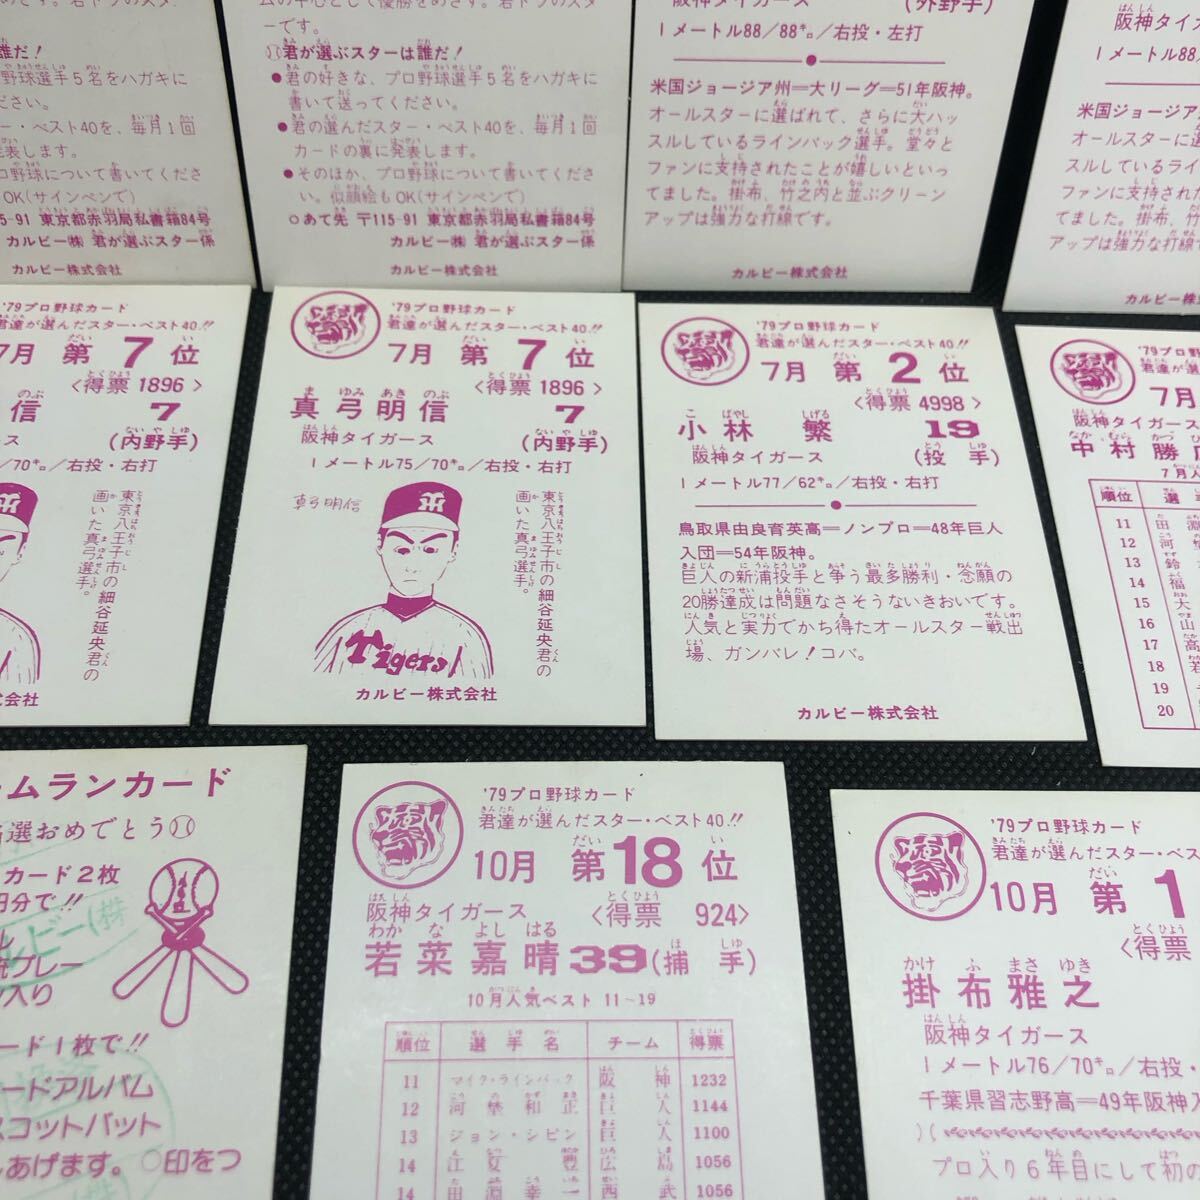 誰だ!
野球選手5名をハガキに
ださい。
ー・ベスト40を、毎月1回
発表します。
プロ野球について書いてくださ
OK(サインペンで)
5-91 東京都赤羽局私書箱84号
カルビー㈱ 君が選ぶスター係
カルビー株式会社
ーです。
君が選ぶスターは誰だ!
●君の好きな、プロ野球選手5名をハガキに
書いて送ってください。
●君の選んだスター・ベスト40を、毎月1回
カードの裏に発表します。
●そのほか、プロ野球について書いてくださ
い。似顔絵もOK(サインペンで)
○あて先 〒115-91 東京都赤羽局私書箱84号
カルビー㈱ 君が選ぶスター係
カルビー株式会社
阪神タイガース (外野手)
1メートル88/88㌔/右投・左打
米国ジョージア州=大リーグ=51年阪神。
オールスターに選ばれて、さらに大ハッ
スルしているラインバック選手。堂々と
ファンに支持されたことが嬉しいといっ
てました。掛布、竹之内と並ぶクリーン
アップは強力な打線です。
カルビー株式会社
阪神タイガ
1メートル88/
米国ジョージア
オールスターに
スルしているライ
ファンに支持され
てました。掛布、
アップは強力な打線
カルビー株式
'79プロ野球カード
君達が選んだスター・ベスト40.!!
7月 第7位
<得票 1896>
信 7
ース (内野手)
75/70㌔/右投・右打
東京八王子市の細谷延央君の
画いた真弓選手。
'79プロ野球カード
君達が選んだスター・ベスト40.!!
7月 第7位
<得票 1896>
真弓明信 7
阪神タイガース (内野手)
1メートル75/70㌔/右投・右打
真弓明信
東京八王子市の細谷延央君の
画いた真弓選手。
Tigers
カルビー株式会社
'79プロ野球カード
君達が選んだスター・ベスト40.!!
7月 第2位
<得票 4998>
小林 繁 19
阪神タイガース (投手)
1メートル77/62㌔/右投・右打
鳥取県由良育英高=ノンプロ=48年巨人
入団=54年阪神。
巨人の新浦投手と争う最多勝利・念願の
20勝達成は問題なさそうないきおいです。
人気と実力でかち得たオールスター戦出
場、ガンバレ!コバ。
カルビー株式会社
'79プロ野
君達が選んだ
7月
阪神タイガース
中村勝
7月人
順位 選
11 田淵
12 河
13 鈴
14 福
15 大
16 山
17 高
18 若
19
20
ームランカード
当選おめでとう
カード2枚
円分で!!
ル
流プレー
ン入り
ード1枚で!!
ードアルバム
スコットバット
しあげます。○印をつ
'79プロ野球カード
君達が選んだスター・ベスト40.!!
10月 第18位
阪神タイガース <得票 924>
若菜嘉晴 39 (捕手)
10月人気ベスト 11~19
順位 選手名 チーム 得票
11 マイク・ラインバック 阪神 1232
12 河埜和正 巨人 1144
13 ジョン・シピン 巨人 1100
14 江夏豊 広島 1056
14 田淵幸一 西武 1056
'79プロ野球カード
君達が選んだスター・ベス
10月 第1
<得票
掛布雅之
阪神タイガース
1メートル76/70㌔/右投・
千葉県習志野高=49年阪神入
プロ入り6年目にして初の